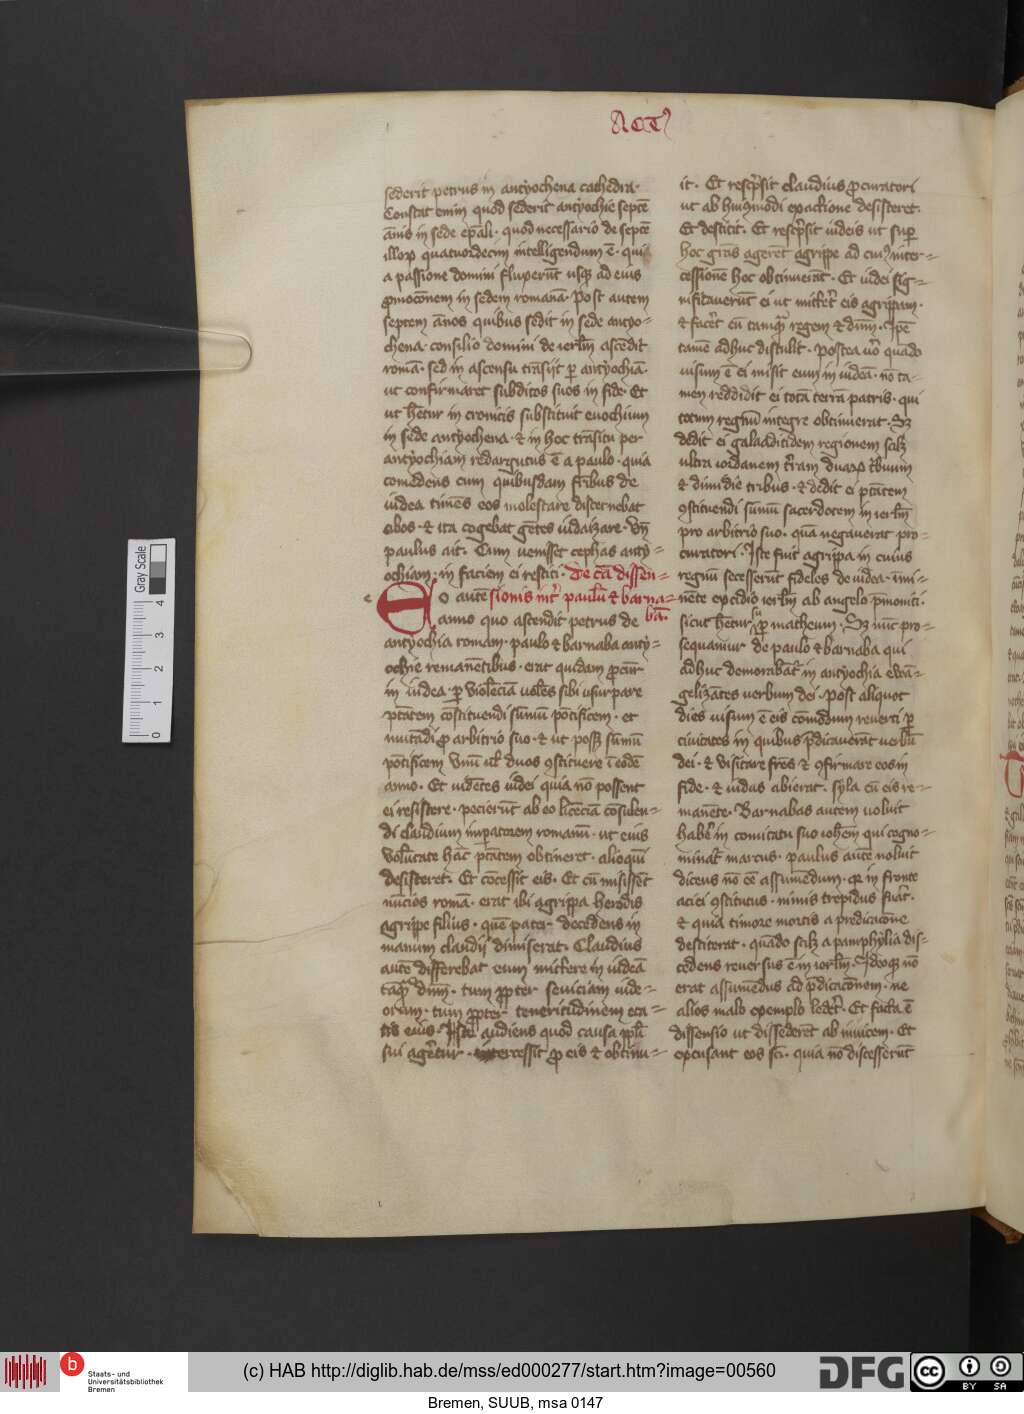 Act'
sederit petrus in antyochena cathedra·
Constat enim quod sederit antyochie septē
ānis in sede ep̄ali· quod necessario de septē
illoꝝ quatuordecim intelligendum ē· quia
a passione domini fluxerūt usqꝫ ad eius
ꝓmocōnem in sedem romanā· Post autem
septem ānos quibus sedit in sede antyo=
chena· consilio domini de ierl̄m ascēdit
romā· sed in ascensu trāsijt ꝑ antyochiā·
ut confirmaret subditos suos in fide· Et
ut hētur in cronicis substituit euochium
in sede antyochena· & in hoc trāsitu per
antyochiam redargutus ē a paulo· quia
comeddens cum quibusdam fr̄ibus de
iudea timēs eos molestare discernebat
cibos· & ita cogebat gētes iudaizare· Vn̄
paulus ait· Cum uenisset cephas anty=
ochiam· in faciem ei restiti· De cā dissen=
sionis int' paulū & barna=
bā·
Eo autē
anno quo ascendit petrus de
antyochia romam· paulo & barnaba anty=
ochie remanētibus· erat quidam ꝓcur̄
in iudea· ꝑ violēciā uolēs sibi usurpare
ptātem cōstituendi sūmū pōtificem· et
mutādi ꝓ arbitrio suo· & ut possꝫ sūmū
pōtificem vnū ul' duos ꝯstituere ī eodē
anno· Et uidētes iudei quia nō possent
ei resistere· pecierūt ab eo licēciā cōsulen=
di claudium imꝑatorem romanū· ut eius
volūtate hāc ptātem obtineret· alioquī
desisteret· Et cōcessit eis· Et cū misissēt
nūcios romā· erat ibi agrippa herodis
agrippe filius· quē pater decedens in
manum claudij dimiserat· Claudius
autē differebat eum mittere in iudeā
tāqꝫ dn̄m· tum ꝓpter seuiciam iude=
orum· tum ꝓpter teneritudinem eta=
tis eius· Iste audiens quod causa ppl̄i
sui agēretur· intercessit ꝓ eis & obtinu=
it· Et rescp̄sit claudius ꝓcuratori
ut ab huiꝰmodi exactione desisteret·
Et destitit· Et rescp̄sit iudeis ut suꝑ
hoc grās agerēt agrippe ad cuiꝰ inter=
cessionē hoc obtinuerāt· Et iudei sig=
nificauerūt ei ut mitt'et eis agrippam·
& fac'et eū tamqꝫ regem & dn̄m· Ipē
tamē adhuc distulit· Postea uō quādo
uisum ē ei misit eum in iudeā· nō ta=
men reddidit ei totā terrā patris· qui
totum regnū integre obtinuerat· Sꝫ
dedit ei galaaditidem regionem scilꝫ
ultra iordanem t'ram duaꝝ tribuum
& dimidie tribus· & dedit ei ptātem
ꝯstituendi sūmū sacerdotem in ierl̄m
pro arbitrio suo· quā negauerat pro=
curatori· Iste fuit agrippa in cuius
regnū secesserūt fideles de iudea· īmi=
nēte excidio ierl̄m ab angelo p̄moniti·
sicut hētur suꝑ matheum· Sꝫ nūc pro=
sequamur de paulo & barnaba qui
adhuc demorabāt' in antyochia ewā=
gelizātes uerbum dei· Post aliquot
dies uisum ē eis cōmodum reuerti ꝑ
ciuitates in quibus p̄dicauerāt uerbū
dei· & visitare frēs & ꝯfirmare eos in
fide· & iudas abierat· syla cū eis re=
manēte· Barnabas autem uoluit
hab'e in comitatu suo ioh̄em qui cogno=
minat' marcus· paulus autē noluit
dicens nō eē assumēdum· qꝛ in fronte
aciei ꝯstitutus· nimis trepidus fuāt·
& quia timore mortis a predicacōne
destiterat· quādo scilꝫ a pamphylia dis=
cedens reuersus ē in ierl̄m· Ideoqꝫ nō
erat assumēdus ad p̄dicacōnem· ne
alios malo exemplo led'et· Et facta ē
dissensio ut dissederēt ab inuicem· Et
excusant eos scī· quia nō discesserūt
Gray Scale
4
3
2
1
0
Staats- und
Universitätsbibliothek
Bremen
(c) HAB http://diglib.hab.de/mss/ed000277/start.htm?image=00560
DFG
cc
BY SA
Bremen, SUUB, msa 0147